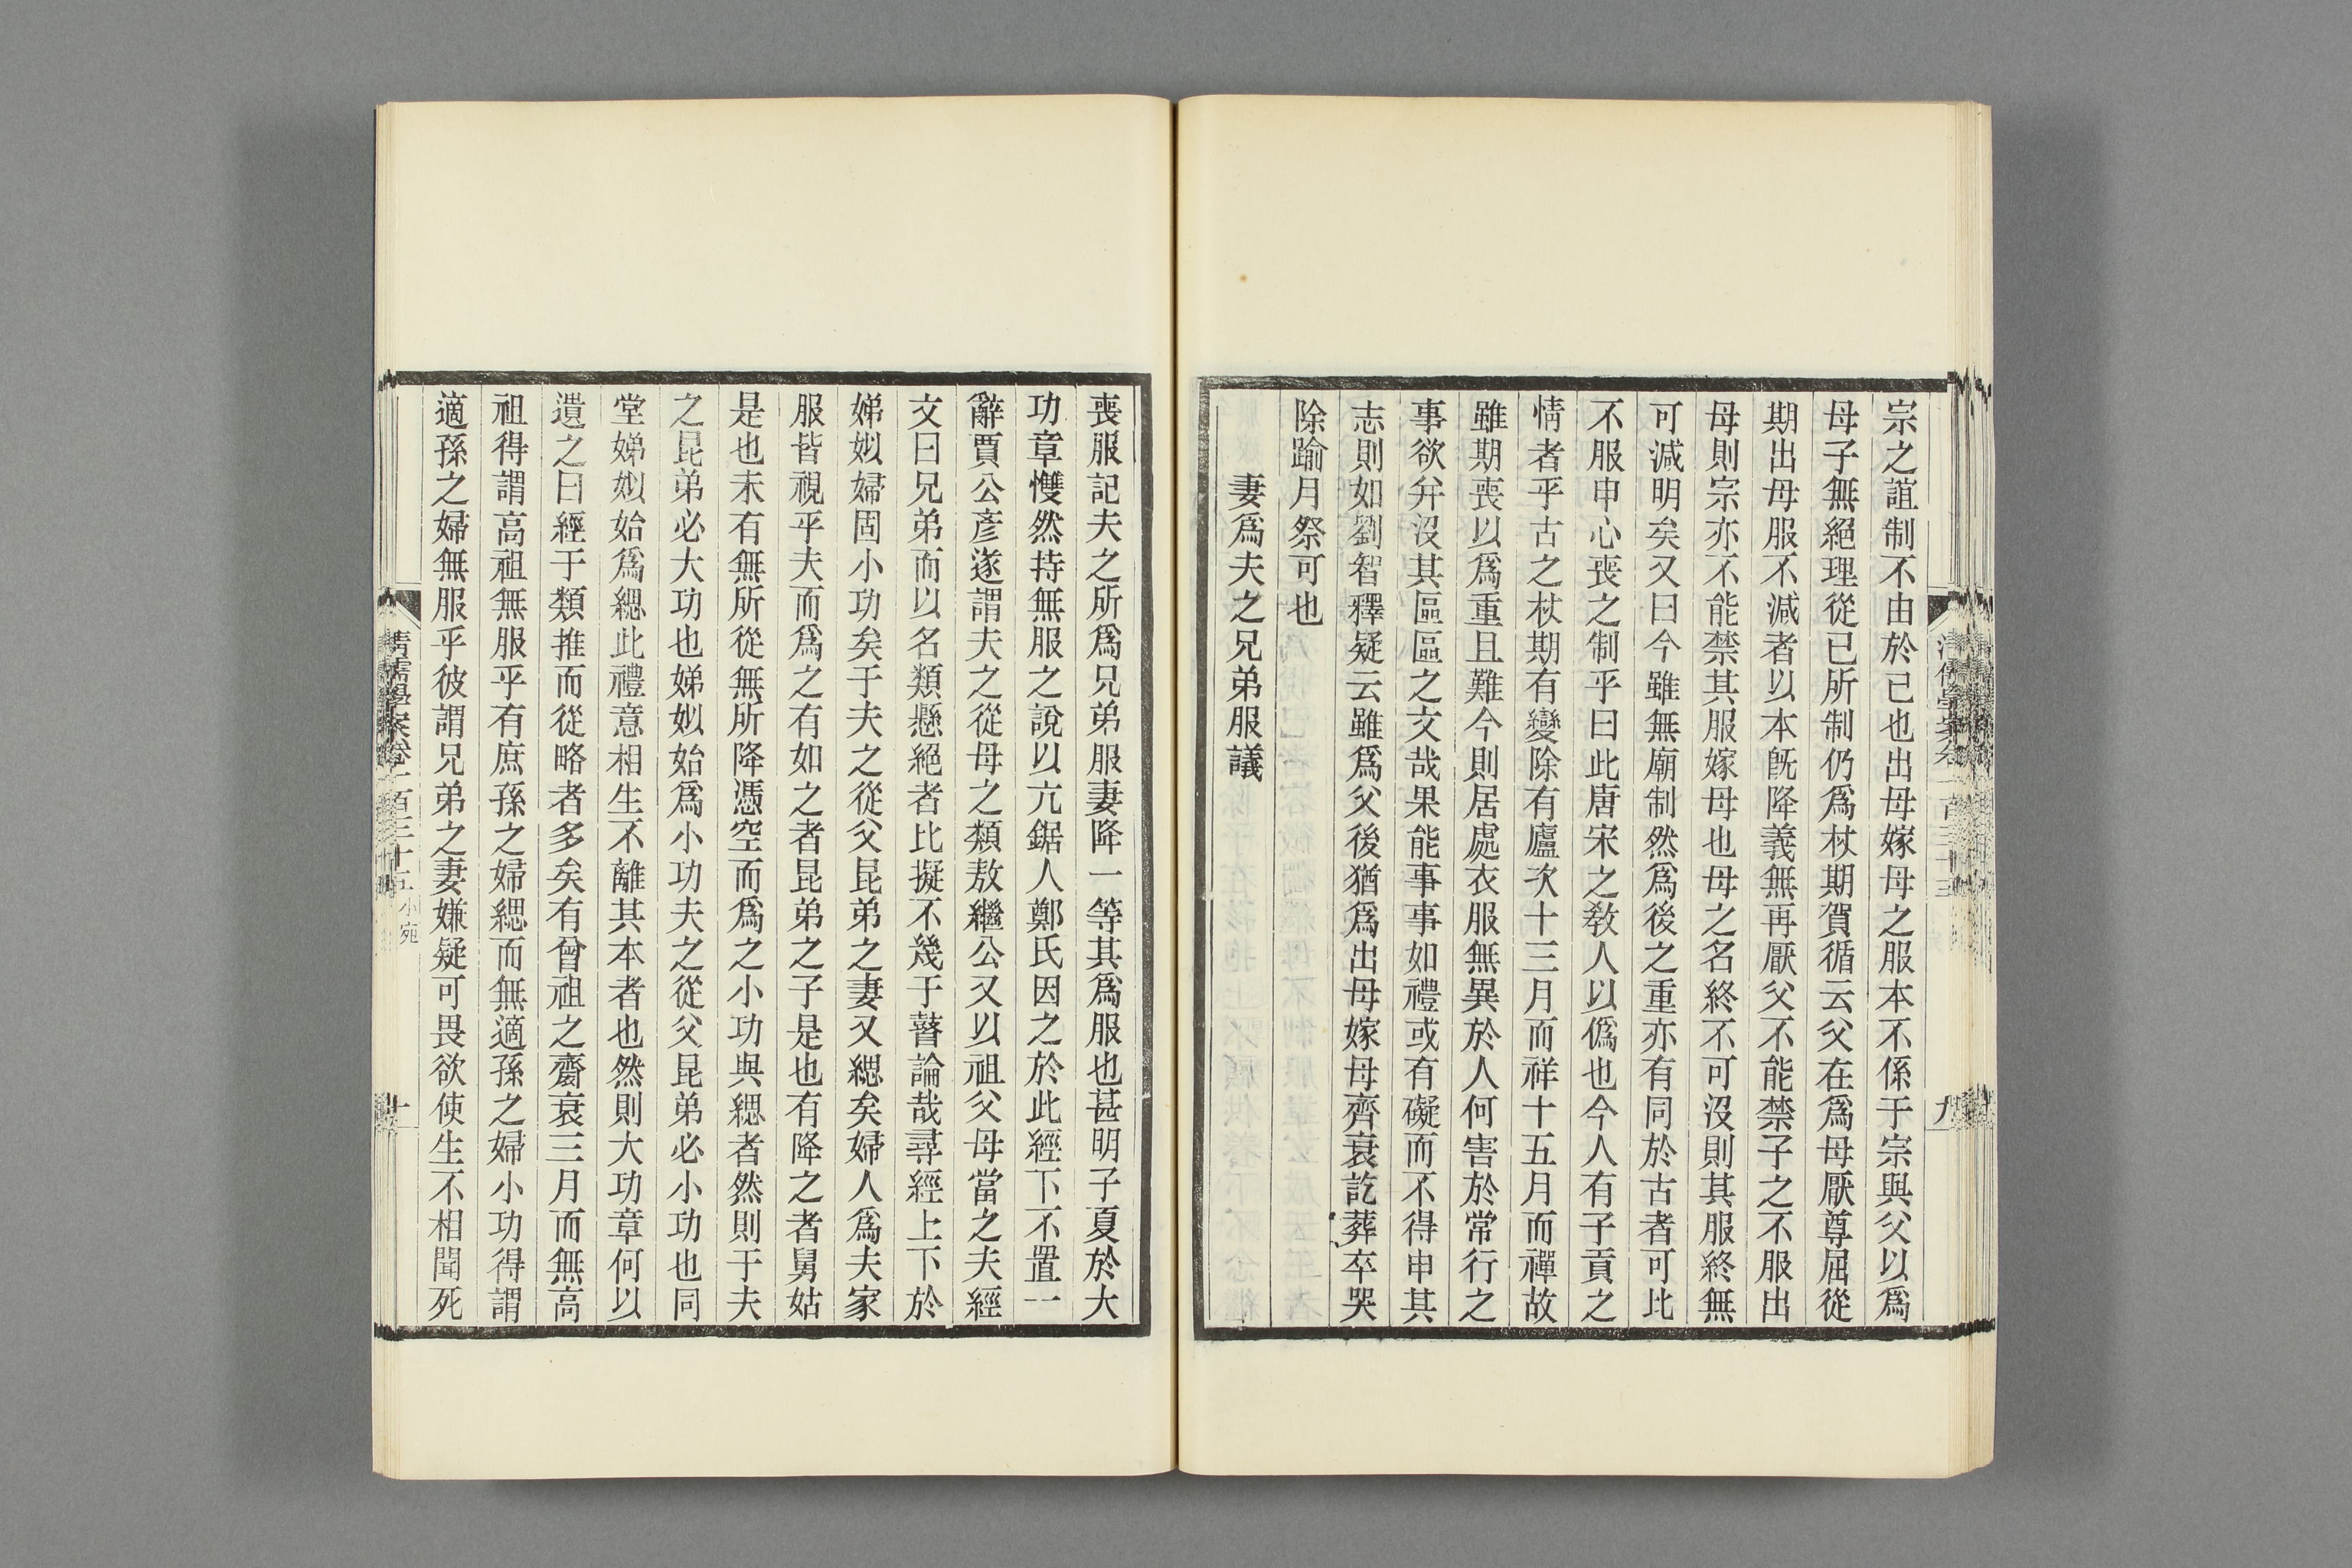 宗之誼制不由於己也出母嫁母之服本不係于宗與父以爲
母子無絕理從已所制仍爲杖期賀循云父在爲母厭尊屈從
期出母服不減者以本旣降義無再厭父不能禁子之不服出
母則宗亦不能禁其服嫁母也母之名終不可沒則其服終無
可減明矣又曰今雖無廟制然爲後之重亦有同於古者可比
不服申心喪之制乎曰此唐宋之敎人以僞也今人有子貢之
情者乎古之杖期有變除有廬次十三月而祥十五月而禫故
雖期喪以爲重且難今則居處衣服無異於人何害於常行之
事欲弁沒其區區之文哉果能事事如禮或有礙而不得申其
志則如劉智釋疑云雖爲父後猶爲出母嫁母齊衰訖葬卒哭
除踰月祭可也
妻爲夫之兄弟服議
九
喪服記夫之所爲兄弟服妻降一等其爲服也甚明子夏於大
功章戄然持無服之說以亢鋸人鄭氏因之於此經下不置一
辭賈公彥遂謂夫之從母之類敖繼公又以祖父母當之夫經
文曰兄弟而以名類懸絕者比擬不幾于瞽論哉尋經上下於
娣姒婦固小功矣于夫之從父昆弟之妻又緦矣婦人爲夫家
服皆視乎夫而爲之有如之者昆弟之子是也有降之者舅姑
是也未有無所從無所降憑空而爲之小功與緦者然則于夫
之昆弟必大功也娣姒始爲小功夫之從父昆弟必小功也同
堂娣姒始爲緦此禮意相生不離其本者也然則大功章何以
遺之曰經于類推而從略者多矣有曾祖之齋衰三月而無高
祖得謂高祖無服乎有庶孫之婦緦而無適孫之婦小功得謂
適孫之婦無服乎彼謂兄弟之妻嫌疑可畏欲使生不相聞死
清儒學案卷一百三十五 小宛
十